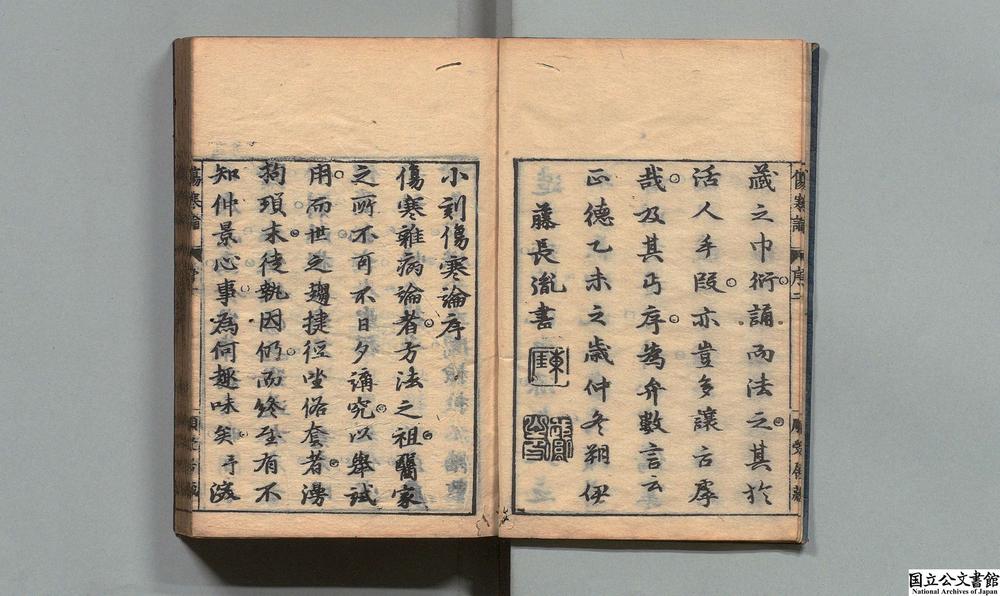 傷寒論 序二
藏之巾衍誦而法之其於
活人手段亦豈多讓古
哉及其丐序為弁數言云
正德乙未之歲仲冬朔伊
藤長胤書
小刻傷寒論序
傷寒雜病論者方法之祖醫家
之所不可不日夕講究以舉試
用而世之趨捷徑坐俗套者漫
拘瑣末徒執因仍而終至有不
知仲景心事為何趣味矣予
傷寒論
国立公文書館
National Archives of Japan